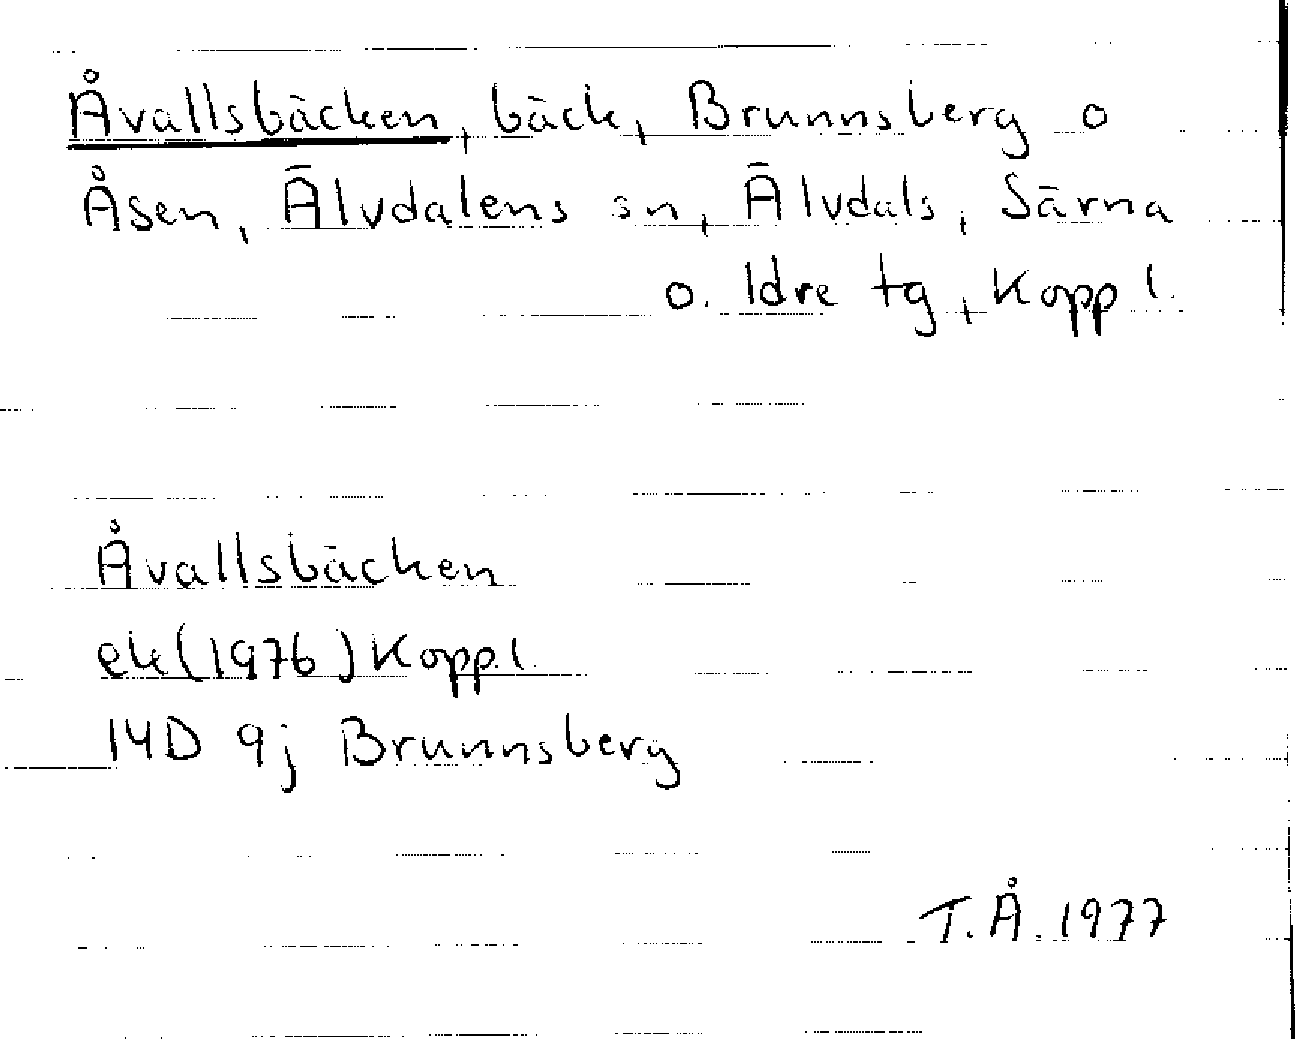 Åvallsbäcken, bäck, Brunnsberg o
Åsen, Älvdalens sn, Älvdals, Särna
o. Idre tg, Kopp l.
Åvallsbäcken
ek (1976) Kopp.l.
14D 9j Brunnsberg
T.Å. 1977